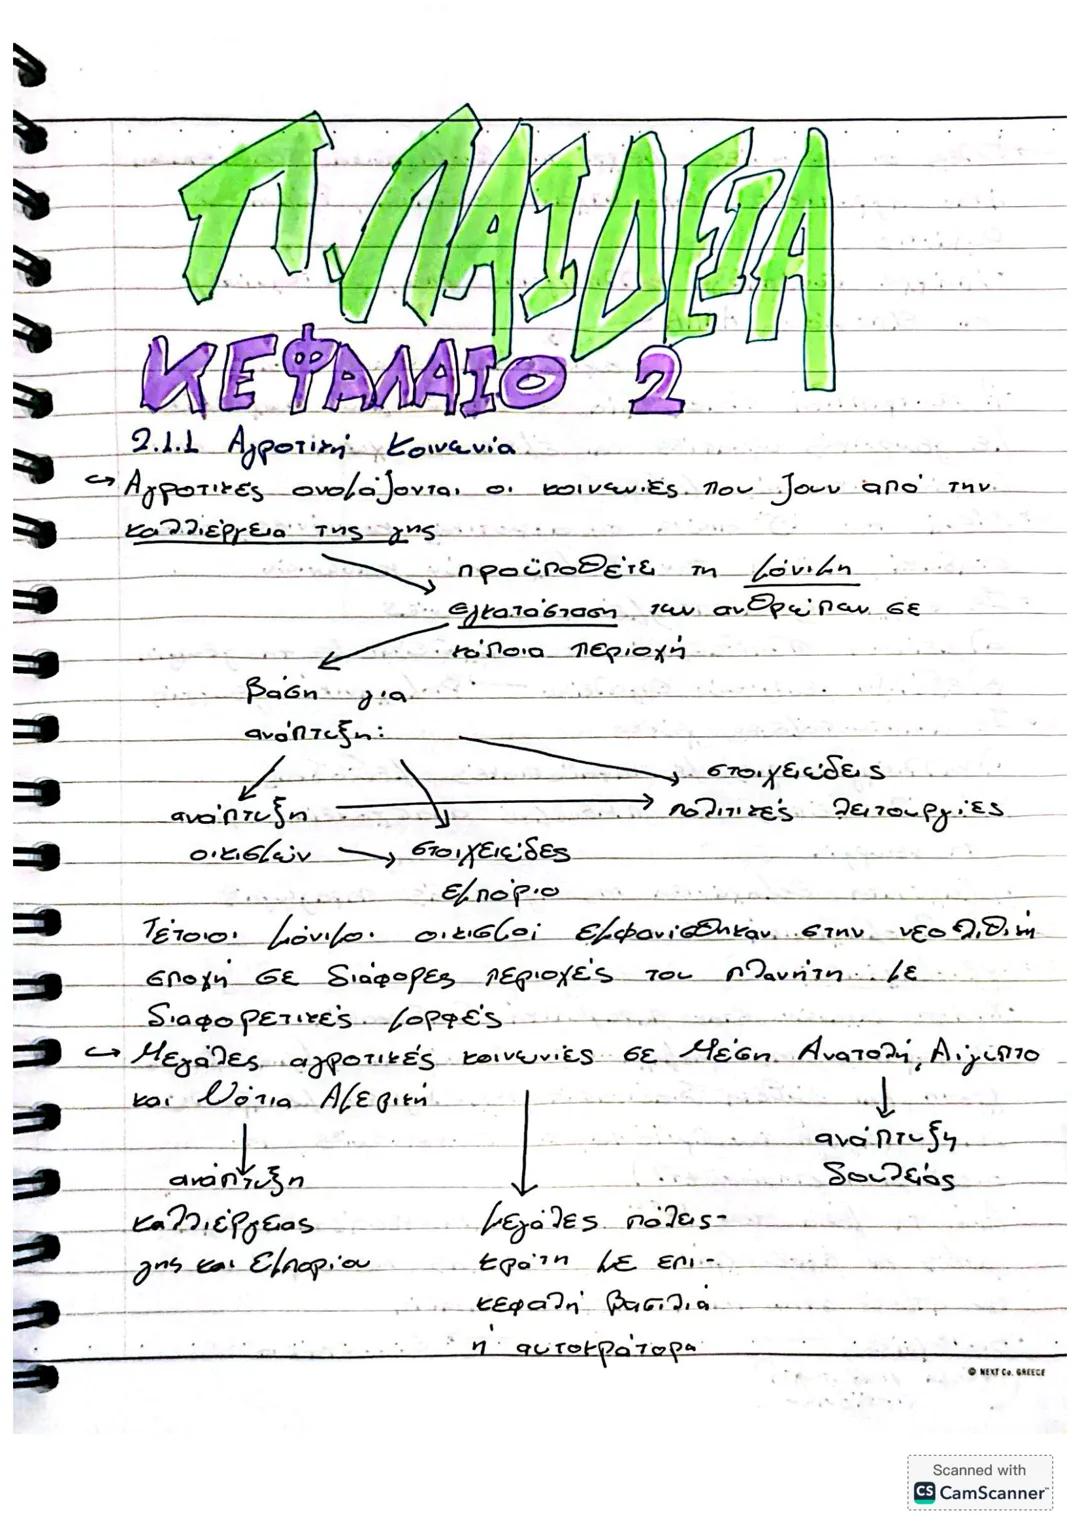 Π.ΠΑΙΔΕΙΑ
ΚΕΦΑΛΑΙΟ 2
2.1.1 Αγροτική Κοινωνία
↪ Αγροτικές ονομάζονται οι κοινωνίες που ζουν από την
καλλιέργεια της γης
προϋποθέτε τη μόνιμη
εγκατάσταση των ανθρώπων σε
κάποια περιοχή
βάση για
ανάπτυξη:
στοιχειώδεις
ανάπτυξη → πολιτικές λειτουργίες
οικισμών → στοιχειώδες
εμπόριο
Τέτοιοι μόνιμοι οικισμοί εμφανίσθηκαν στην νεολιθική
εποχή σε διάφορες περιοχές του πλανήτη με
διαφορετικές μορφές
↪ Μεγάλες αγροτικές κοινωνίες σε Μέση Ανατολή, Αίγυπτο
και Νότια Αμερική
ανάπτυξη
δουλείας
ανάπτυξη
καλλιέργειας
γης και εμπορίου
μεγάλες πόλεις-
κράτη με επι-
κεφαλή βασιλιά
ή αυτοκράτορα
© NEXT Co. GREECE
Scanned with
CS CamScanner